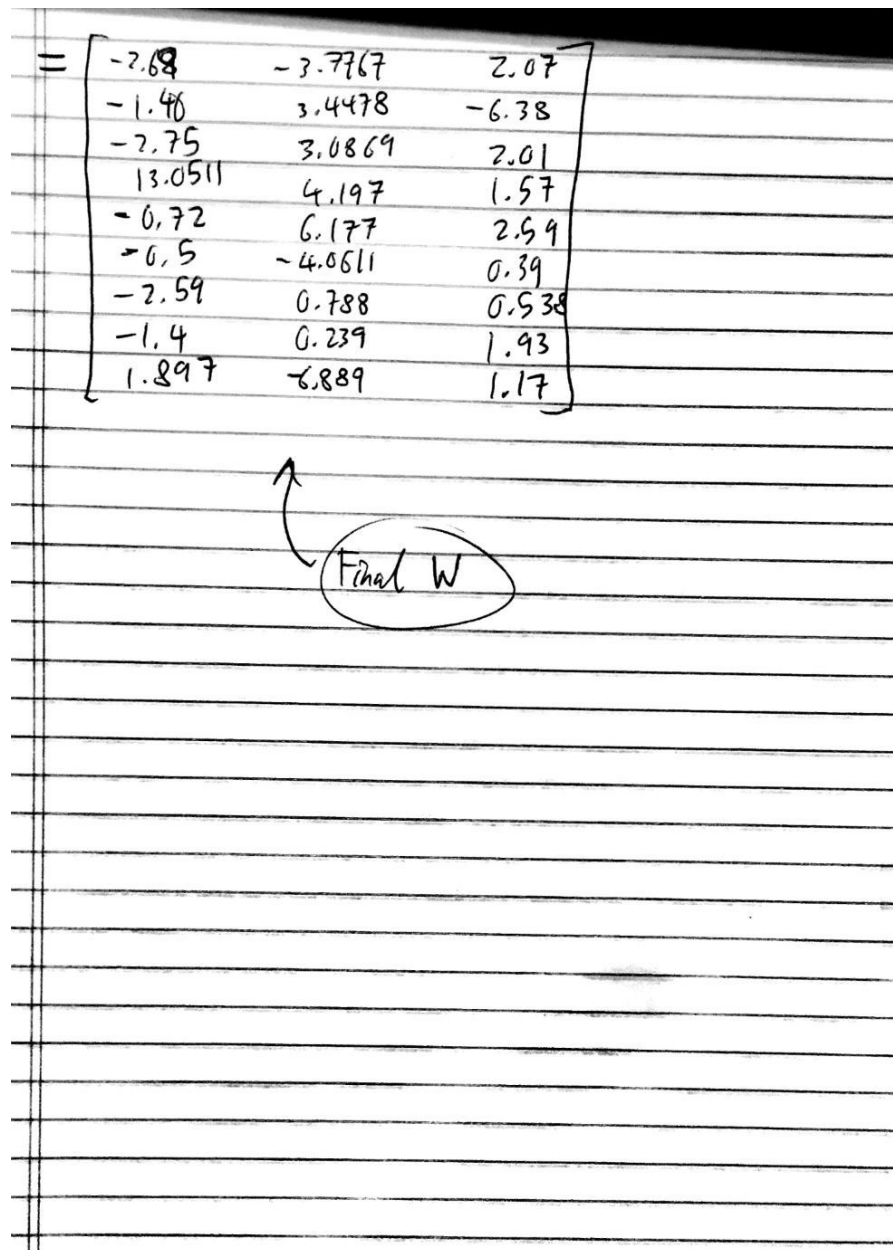 = -2.68 -3.7767 2.07
-1.46 3.4478 -6.38
-2.75 3.0869 2.01
13.0511 4.197 1.57
-0.72 6.177 2.59
-0.5 -4.0611 0.39
-2.59 0.788 0.538
-1.4 0.239 1.93
1.897 -6.889 1.17
Final W